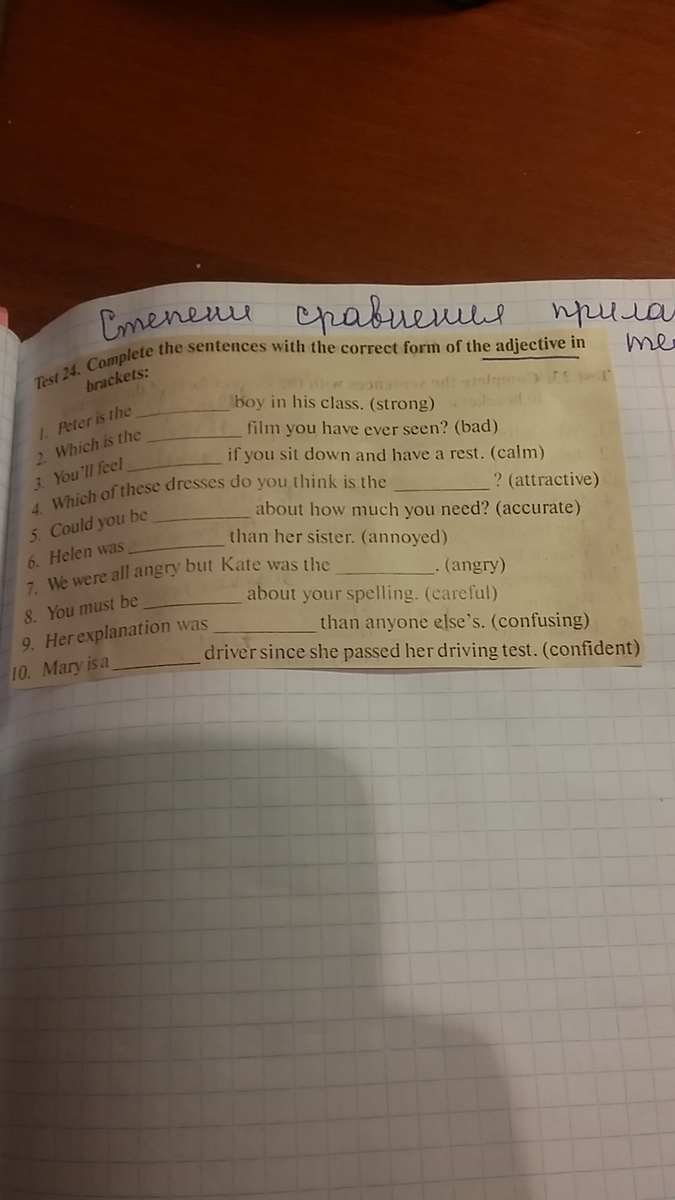 Степени сравнения прила
Test 24. Complete the sentences with the correct form of the adjective in
brackets:
1. Peter is the __________ boy in his class. (strong)
2. Which is the __________ film you have ever seen? (bad)
3. You'll feel __________ if you sit down and have a rest. (calm)
4. Which of these dresses do you think is the __________ ? (attractive)
5. Could you be __________ about how much you need? (accurate)
6. Helen was __________ than her sister. (annoyed)
7. We were all angry but Kate was the __________. (angry)
8. You must be __________ about your spelling. (careful)
9. Her explanation was __________ than anyone else's. (confusing)
10. Mary is a __________ driver since she passed her driving test. (confident)